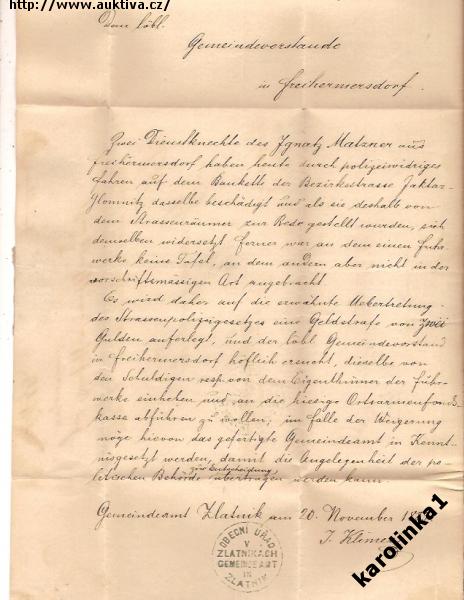 http://www.auktiva.cz/)
Dem löbl.
Gemeindevorstande
in Freihermersdorf.
Zwei Dienstknechte des Ignatz Matzner aus
Freihermersdorf haben heute durch polizeiwidriges
Fahren auf dem Bankette der Bezirksstrasse Jaktar-
Glomnitz dasselbe beschädigt und als sie deshalb von
dem Strassenräumer zur Rede gestellt wurden, sich
demselben widersetzt ferner war an dem einen Fuhr-
werke keine Tafel, an dem andern aber nicht in der
vorschriftsmässigen Art angebracht.
Es wird daher auf die erwähnte Uebertretung
des Strassenpolizeigesetzes eine Geldstrafe von zwei
Gulden auferlegt, und der löbl Gemeindevorstand
in Freihermersdorf höflich ersucht, dieselbe von
den Schuldigen resp. von dem Eigenthümer der Fuhr-
werke einheben und an die hiesige Ortsarmenfonds-
kasse abführen zu wollen; im Falle der Weigerung
möge hievon das gefertigte Gemeindeamt in Kennt-
niss gesetzt werden, damit die Angelegenheit der po-
litischen Behörde zur Entscheidung übertragen werden kann.
Gemeindeamt Zlatnik am 20. November
J. Klimesch
OBECNÍ ÚŘAD
V
ZLATNÍKÁCH
GEMEINDEAMT
IN
ZLATNIK
karolinka1